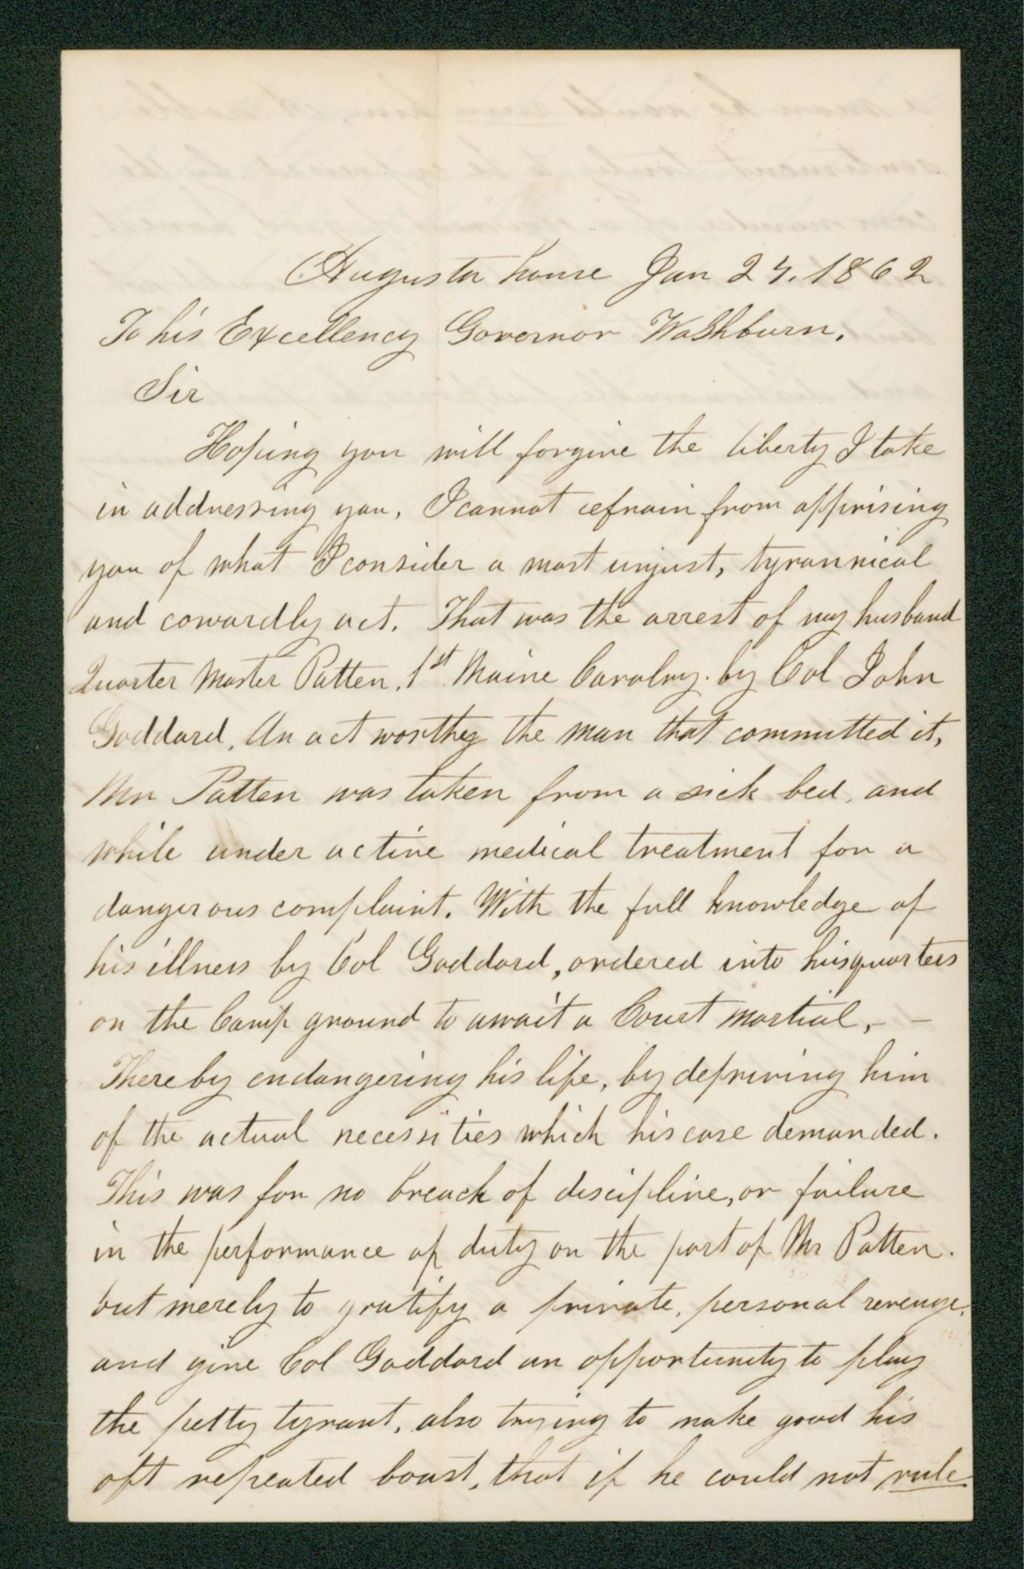 Augusta house Jan 27. 1862
To his Excellency Governor Washburn.
Sir
Hoping you will forgive the liberty I take
in addressing you, I cannot refrain from apprising
you of what I consider a most unjust, tyrannical
and cowardly act. That was the arrest of my husband
Quarter Master Patten, 1st Maine Cavalry. by Col John
Goddard, An act worthy the man that committed it,
Mr Patten was taken from a sick bed, and
while under active medical treatment for a
dangerous complaint. With the full knowledge of
his illness by Col Goddard, ordered into his quarters
on the Camp ground to await a Court martial, - -
Thereby endangering his life, by depriving him
of the actual necessities which his case demanded.
This was for no breach of discipline, or failure
in the performance of duty on the part of Mr Patten.
but merely to gratify a private, personal revenge,
and give Col Goddard an opportunity to play
the petty tyrant, also trying to make good his
oft repeated boast, that if he could not rule